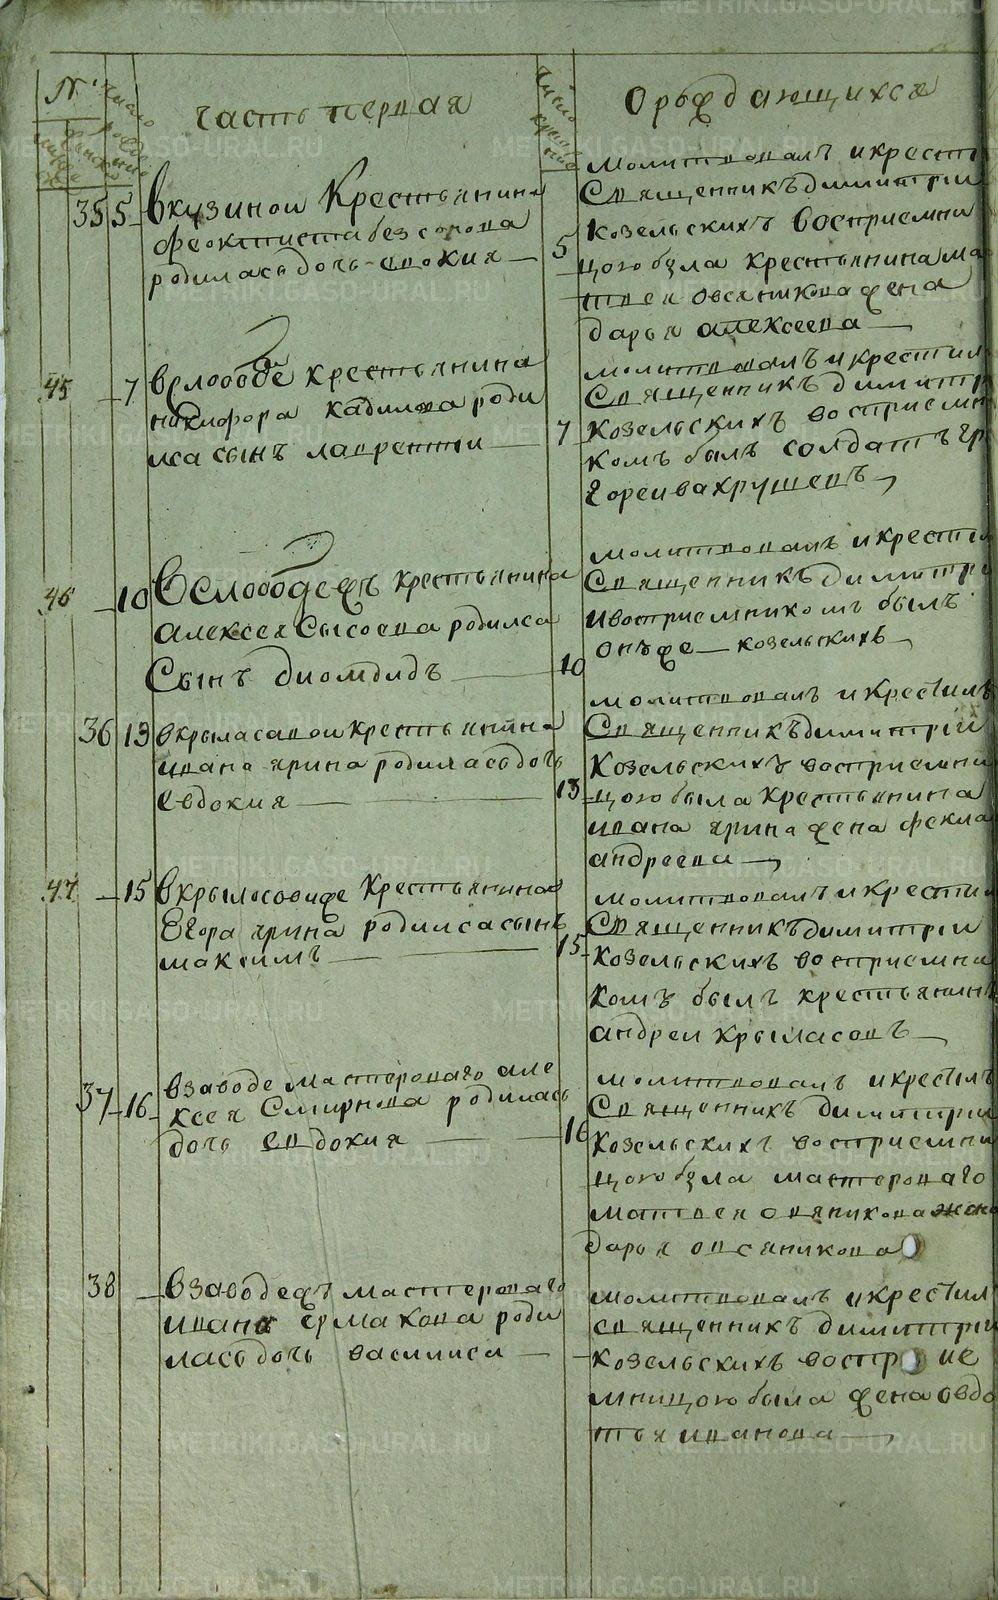 часть первая
О рождающихся
35 5 Вкузинои Крестьянина
феоктиста безсонова
родиласьдочь евокия
молитвовалъ икрести
Священникъ димитрии
козельскихъ восприемни
5 цою была крестьянина ма
твея овсяникова жена
дарья алексеева
45 7 Вслободе крестьянина
никифора кадилова роди
лса сынъ лаврентии
молитвовалъ икрестил
Священникъ димитр
7 козельскихъ восприемн
комъ былъ солдатъ гр
горей вахрушевъ
46 10 Вслободежъ крестьянина
алексея Сысоева родилса
Сынъ диомидъ
молитвовалъ икрести
Священникъ димитри
ивосприемникомъ былъ
10 онъже козельскихъ
36 13 вкрыласовои крестьянина
ивана ярина родиласьдочь
евдокия
молитвовалъ икрестилъ
Священникъ димитрии
козельскихъ восприемни
13 цою была крестьянина
ивана ярина жена фекла
андреева
47 15 вкрыласовиже крестьянина
Егора ярина родилсасынъ
максимъ
молитвовалъ икрести
Священникъ димитрии
15 козельскихъ восприемни
комъ былъ крестьянинъ
андреи крыласовъ
37 16 взаводе мастероваго але
ксея Смирнова родилась
дочь евдокия
молитвовалъ икрестилъ
Священникъ димитрии
16 козельскихъ восприемни
цою была мастероваго
матвея овяникова жена
дарья овсяникова
38 взаводежъ мастероваго
ивана ермакова роди
ласьдочь василиса
молитвовалъ икрестил
священникъ димитрии
козельскихъ воспр ие
мницою была жена овдо
тья иванова
METRIKI.GASO-URAL.RU